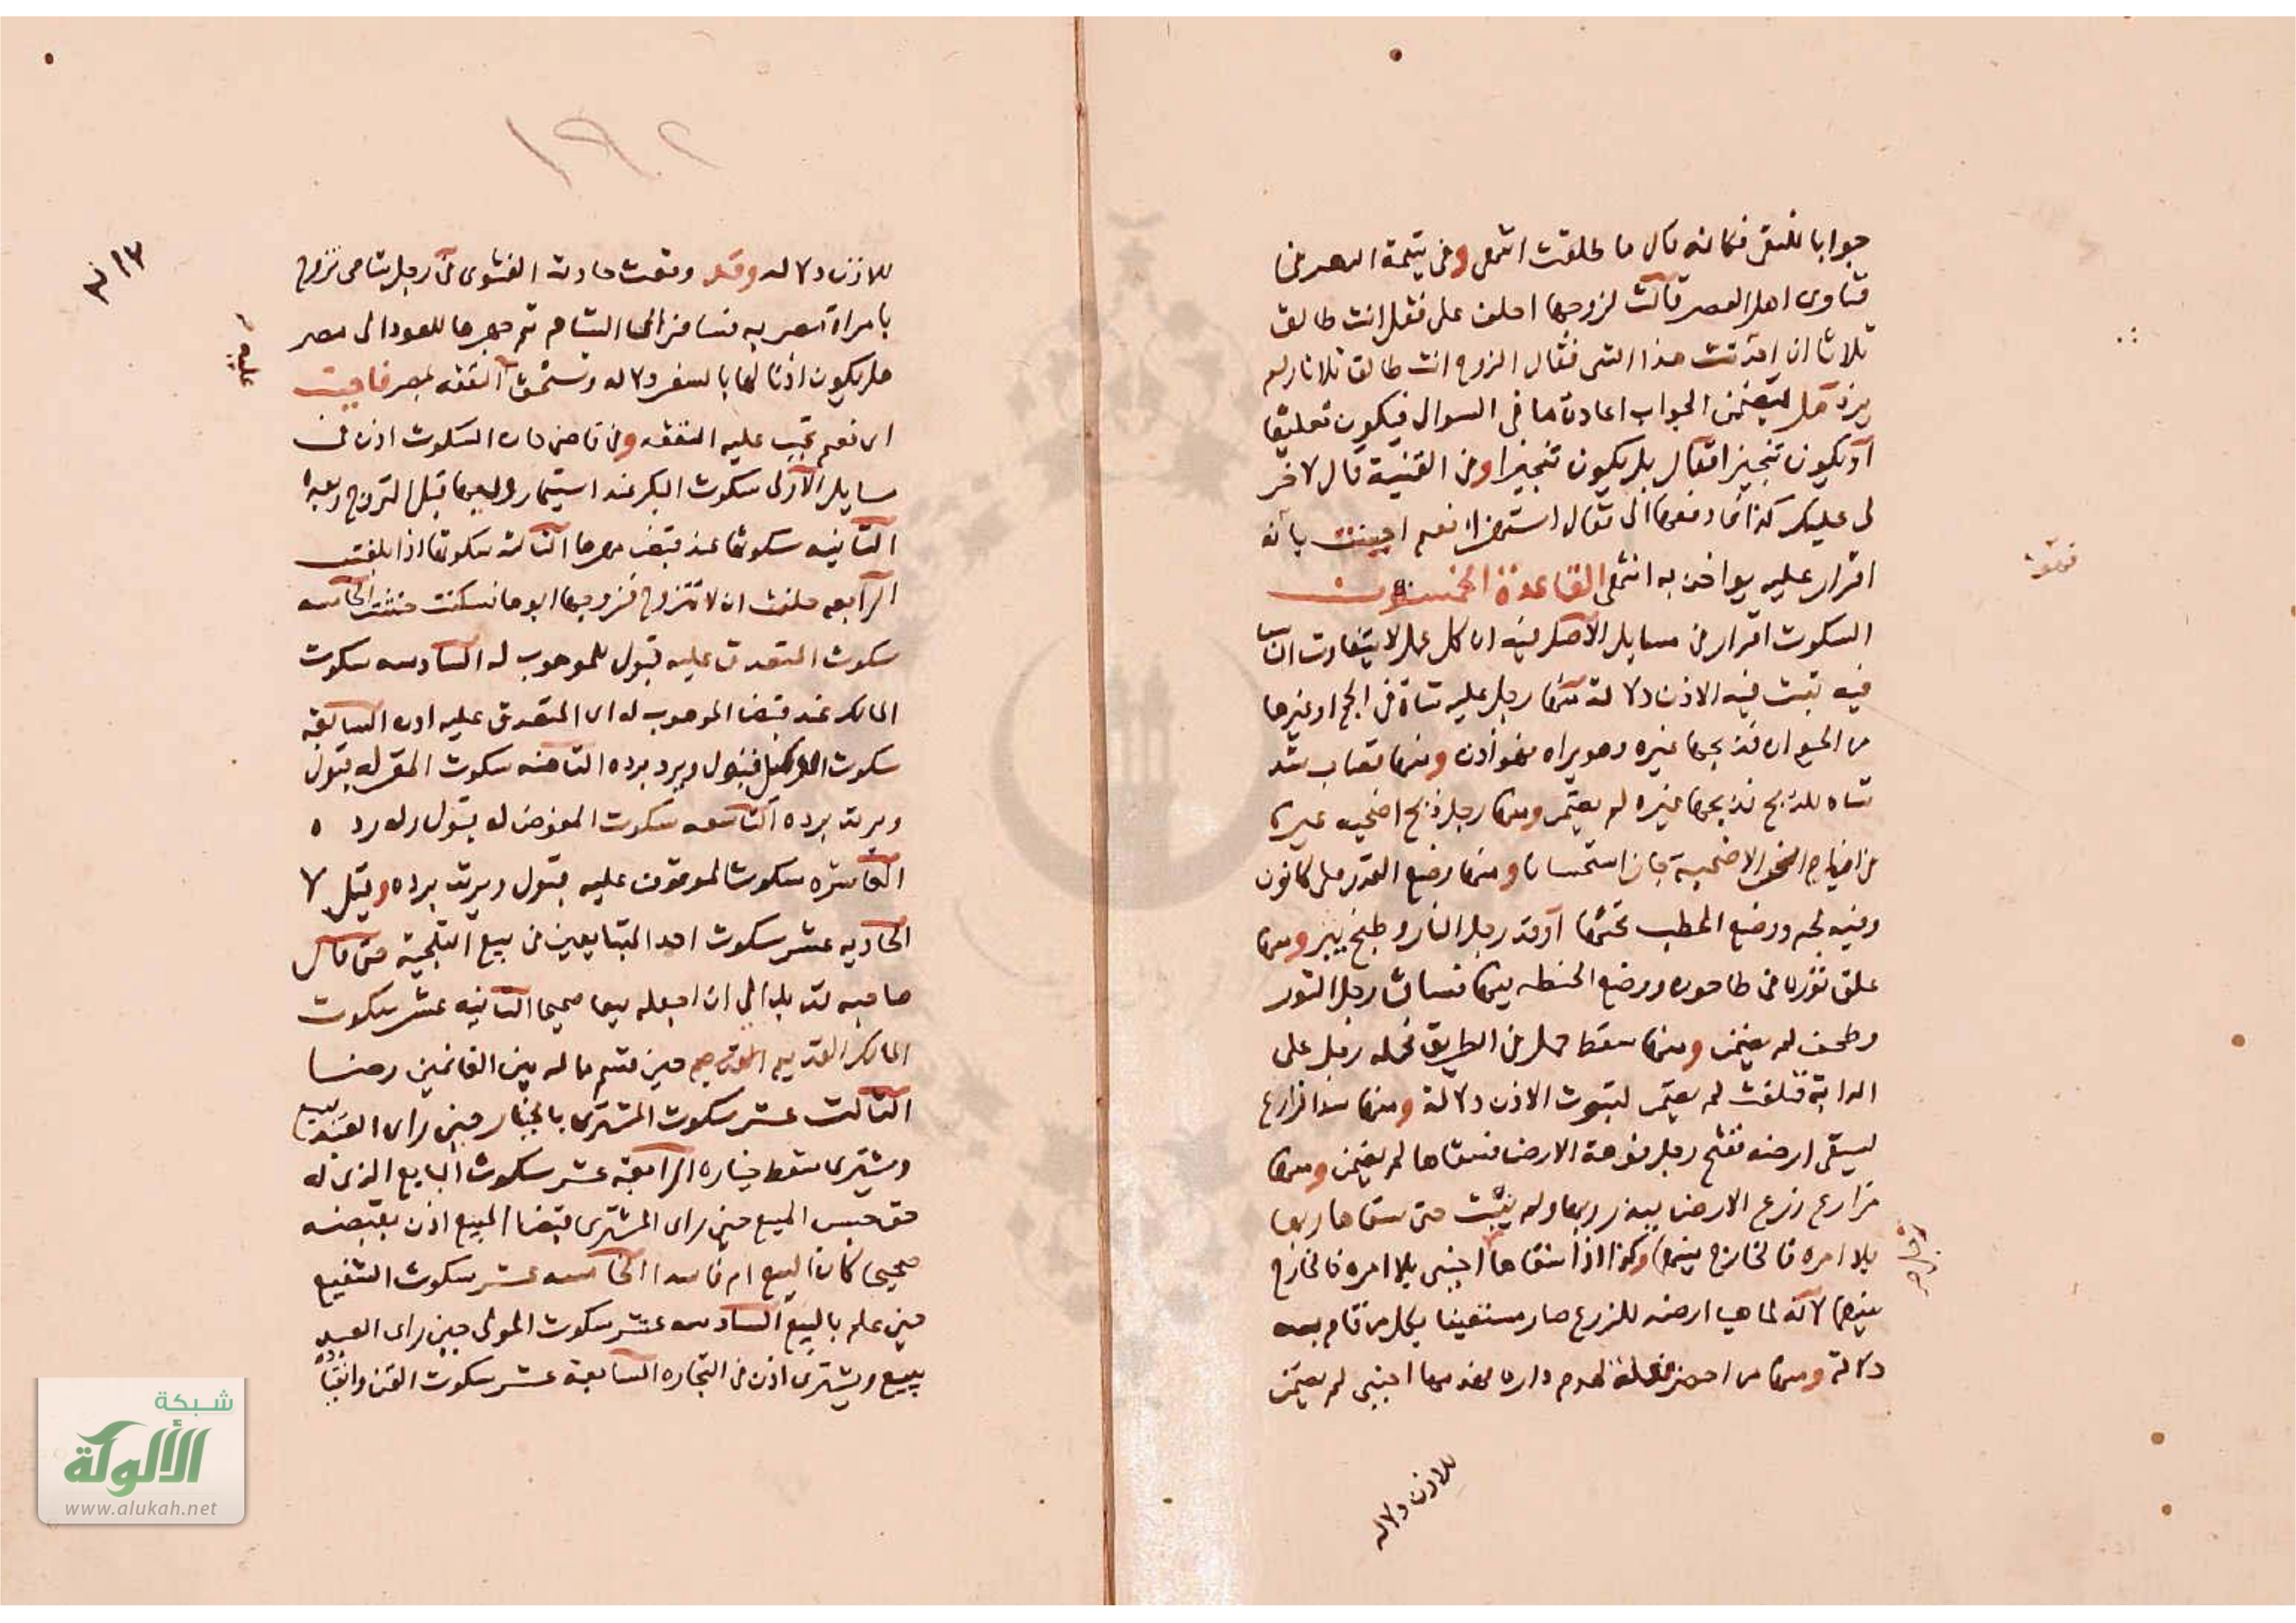 جوابا للنفى فكانه قال ما طلقت انتهى وفى يتيمة الدهر فى
فتاوى اهل العصر قالت لزوجها احلف على فقل انت طالق
ثلاثا ان اخذت هذا الشى فقال الزوج انت طالق ثلاثا ولم
يزد هل يتضمن الجواب اعادة ما فى السوال فيكون تعليقا
او يكون تنجيزا فقال بل يكون تنجيزا وفى القنية قال لاخر
لى عليك كذا فادفعها الى فقال استهزاء نعم احسنت بانه
اقرار عليه يواخذ به انتهى القاعدة الخمسون
السكوت اقرار فى مسايل الاصل فيه ان كل عمل لا يتفاوت الناس
فيه تثبت فيه الاذن دلالة منها رجل عليه شاة فى الحج او غيرها
من الحيوان فذبحها غيره وهو يراه فهو اذن ومنها قصاب شد
شاه للذبح فذبحها غيره لم يضمن ومنها رجل ذبح اضحيه غيره
فى ايام النحر الاضحية جاز استحسانا ومنها وضع القدر على كانون
وفيه لحم ووضع الحطب تحتها اوقد رجل النار وطبخ ومنها
علق ثوره فى طاحونه ووضع الحنطه فيها فساق رجل الثور
وطحن لم يضمن ومنها سقط حمل فى الطريق فحمله رجل على
الدابة فتلفت لم يضمن لثبوت الاذن دلالة ومنها شد المزارع
ليسقى ارضه ففتح رجل فوهة الارض فسقاها لم يضمن ومنها
مزارع زرع الارض ببذر ربها ولم ينبت حتى سقاها ربها
بلا امره فالخارج بينهما وكذا اذا سقاها اجنبى بلا امره فالخارج
بينهما لانه لما هيا ارضه للزرع صار مستعينا بكل من قام به
دلالة ومنها من احضر فعلة لهدم داره فهدمها اجنبى لم يضمن
للاذن دلاله
١٩٢
للاذن دلاله وقد وقعت حادثة الفتوى فى رجل شامى تزوج
بامراة مصريه فسافر الى الشام ثم جهزها للعود الى مصر
هل يكون اذنا لها بالسفر دلاله وتستحق النفقه بمصر فاجبت
اى نعم تجب عليه النفقه وفى قاضى خان السكوت اذن فى
مسايل الاولى سكوت البكر عند استيمار وليها قبل التزوج وبعده
الثانيه سكوتها عند قبض مهرها الثالثه سكوتها اذا بلغت
الرابعه حلفت ان لا تتزوج فزوجها ابوها فسكتت حنثت الخامسه
سكوت المتصدق عليه قبول للموهوب له السادسه سكوت
المالك عند قبض الموهوب له او المتصدق عليه اذن السابعه
سكوت الوكيل قبول ويرد برده الثامنه سكوت المقر له قبول
ويرتد برده التاسعه سكوت المفوض له قبول وله رده
العاشره سكوت الموقوف عليه قبول ويرتد برده وقيل لا
الحاديه عشر سكوت احد المتبايعين فى بيع التلجية حتى قال
صاحبه قد بدا لى ان اجعله بيعا صحيحا الثانيه عشر سكوت
المالك القديم حين قسم ماله بين الغانمين رضا
الثالث عشر سكوت المشترى بالخيار حين راى العبد يبيع
ويشترى سقط خياره الرابعة عشر سكوت البايع الذى له
حق حبس المبيع حين راى المشترى قبض المبيع اذن بقبضه
صحيحا كان البيع ام فاسدا الخامسه عشر سكوت الشفيع
حين علم بالبيع السادسه عشر سكوت المولى حين راى العبد
يبيع ويشترى اذن فى التجاره السابعة عشر سكوت القن وانقياده
شبكة
الألوكة
www.alukah.net